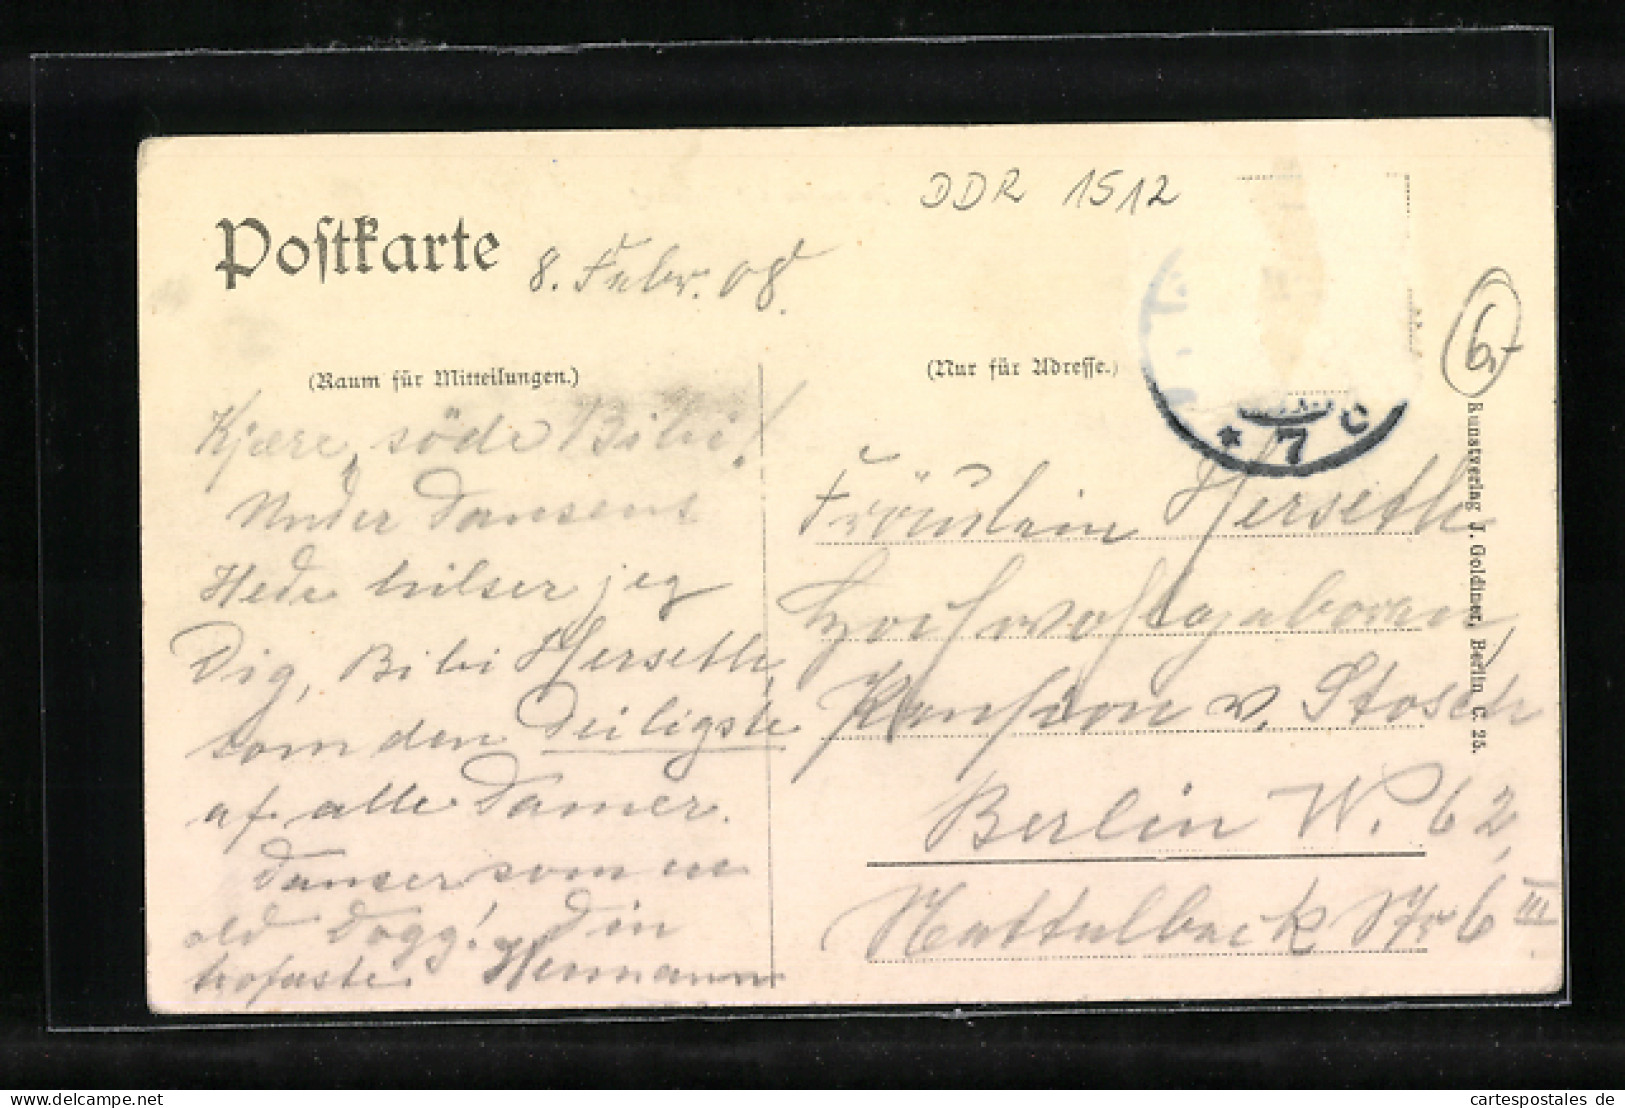 DDR 1512
Postkarte 8. Febr. 08.
(Raum für Mitteilungen.)
(Nur für Adresse.)
6,-
* 7 c
Kjære, söde Bibi!
Under Dansens
Hede hilser jeg
Dig, Bibi Herseth,
som den deiligste
af alle Damer.
Danser som en
old Dogg! Din
trofaste Hermann
Fräulein Herseth
Hochwohlgeboren,
Pension v. Stosch
Berlin W. 62,
Kettelbeck Str 6 III
Kunstverlag J. Goldiner, Berlin C. 25.
hippostcard.com
cartespostales de